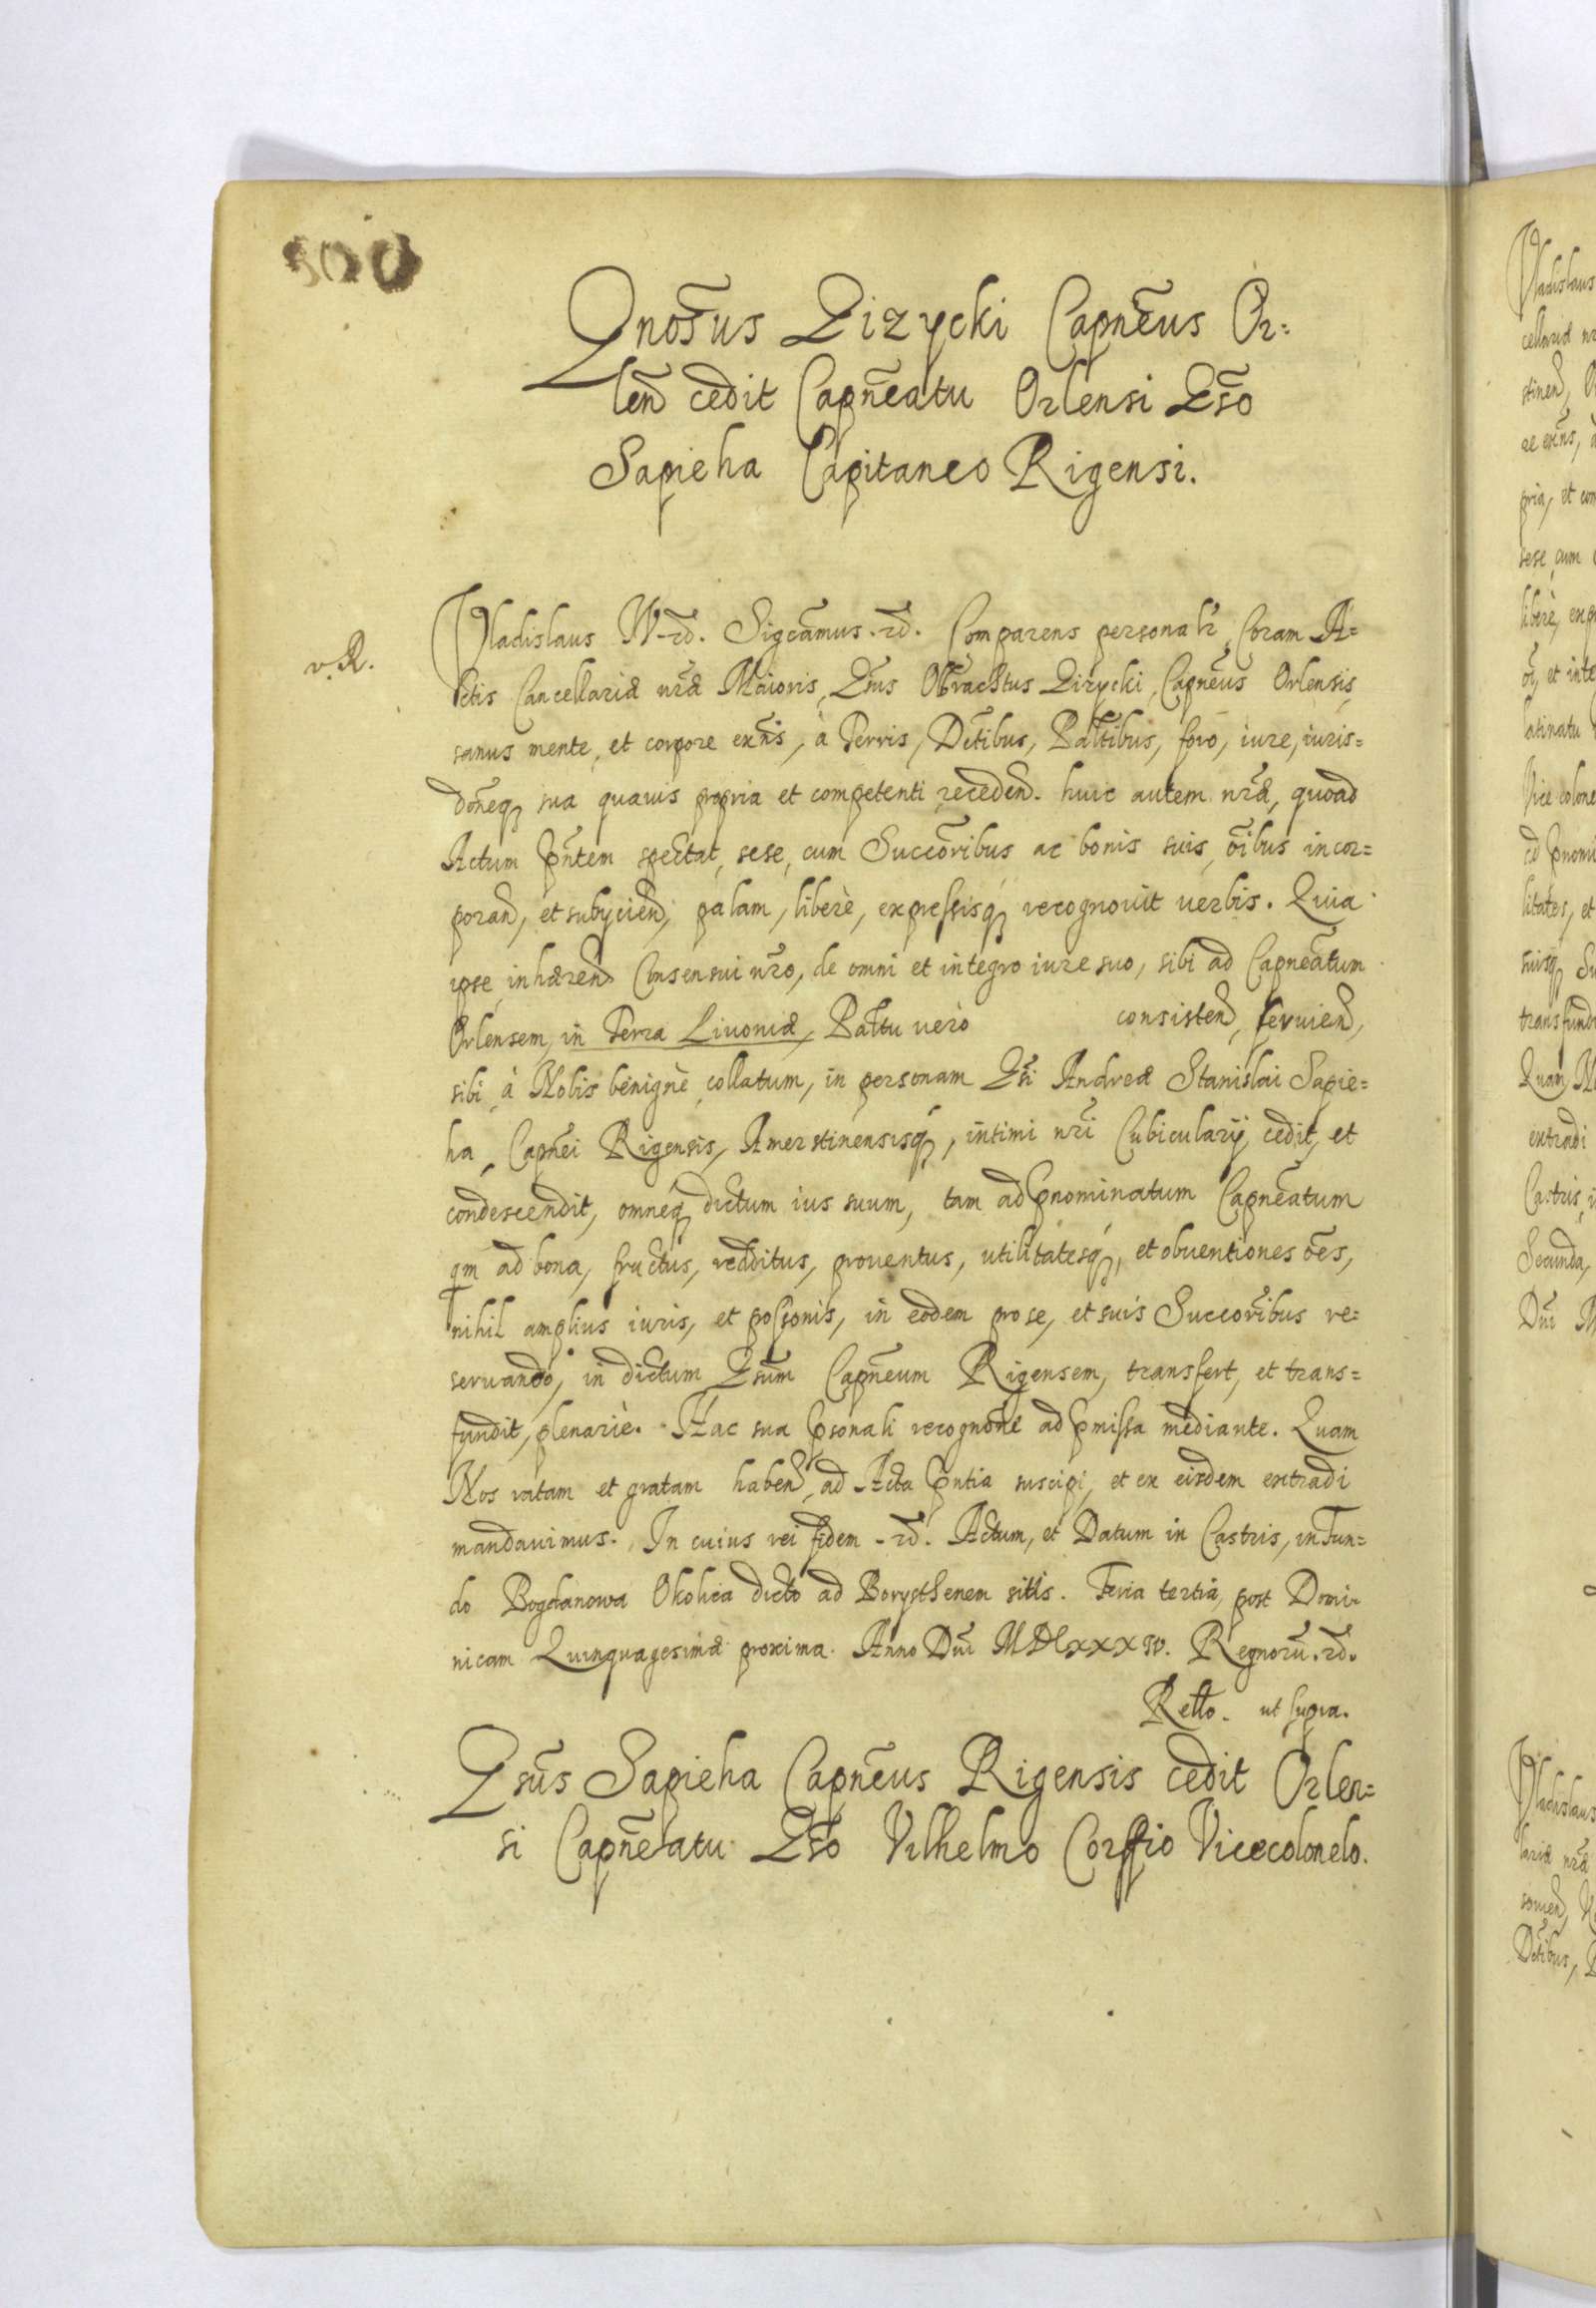 500
Gnosus Lizycki Capneus Or=
len cedit Capneatu Orlensi Gso
Sapieha Capitaneo Rigensi.
v. R.
Vladislaus IV. rd. Sigcamus. rd. Comparens personalr, Coram A=
ctis Cancellariæ nræ Maioris, Gsus Obrachtus Lizycki, Capneus Orlensis,
sanus mente, et corpore exns, à Terris, Dctibus, Paltibus, foro, iure, iuris=
doneq sua quavis propria et competenti receden. huic autem nræ, quoad
Actum pntem spectat, sese, cum Succoribus ac bonis suis, oibus incor=
poran, et subycien, palam, liberè, expressisq recognovit verbis. Quia
ipse, inhæren Consensui nro, de omni et integro iure suo, sibi ad Capneatum
Orlensem, in Terra Livoniæ, Paltu verò consisten, servien,
sibi, à Nobis benignè, collatum, in personam Gsi Andreæ Stanislai Sapie=
ha, Capnei Rigensis, Amerstinensisq, intimi nri Cubicularij, cedit, et
condescendit, omneq dictum ius suum, tam ad pnominatum Capneatum
qm ad bona, fructus, redditus, proventus, utilitatesq, et obventiones oes,
nihil amplius iuris, et possonis, in eodem pro se, et suis Succoribus re=
servando, in dictum Gsum Capneum Rigensem, transfert, et trans=
fundit, plenariè. Hac sua psonali recognone ad pmissa mediante. Quam
Nos ratam et gratam haben, ad Acta pntia suscipi, et ex eisdem extradi
mandavimus. In cuius rei fidem - rd. Actum, et Datum in Castris, in Fun=
do Bogdanowa Okolica dicto ad Borysthenem sitis. Feria tertia, post Domi=
nicam Quinquagesimæ proxima. Anno Dni MDCXXXIV. Regnoru. rd.
Retto. ut supra.
Gsus Sapieha Capneus Rigensis cedit Orlen=
si Capneatu Gso Vilhelmo Corffio Vicecolonelo.